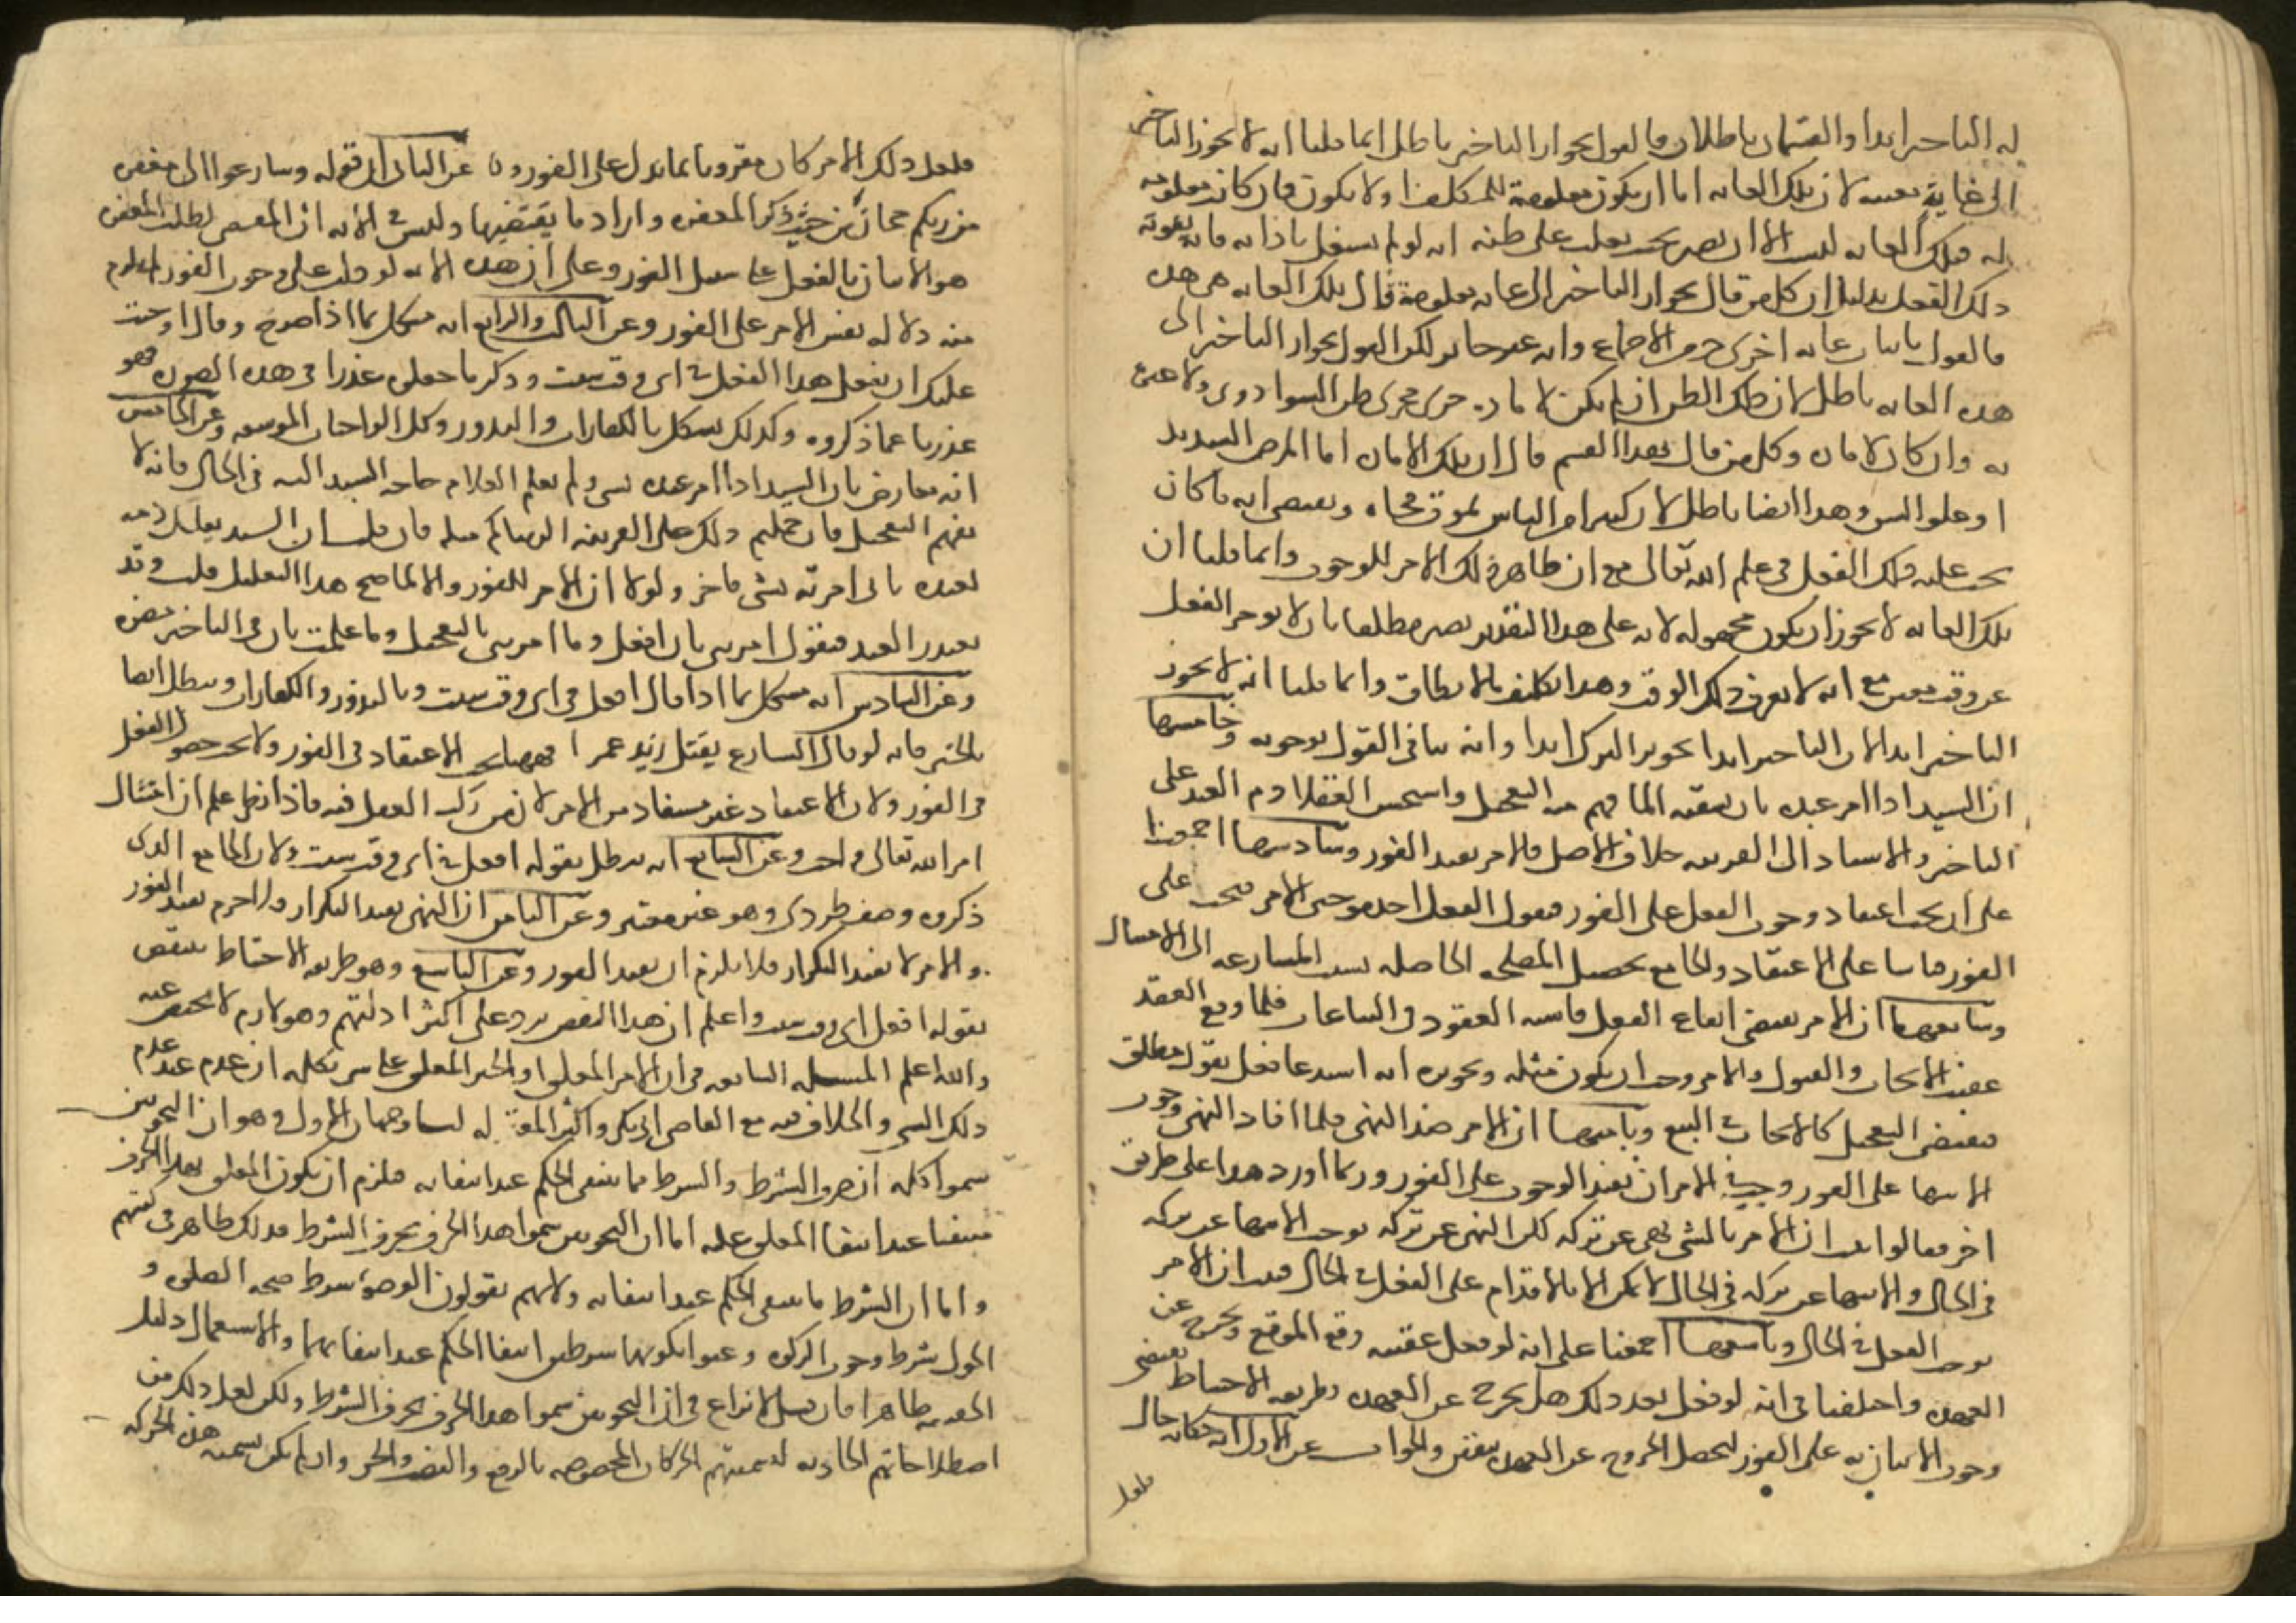 له التاخير ابدا والقسمان باطلان فالقول بجواز التاخير باطل انما قلنا انه لا يجوز التاخير
الى غاية معينه لان تلك الغايه اما ان يكون معلومة للمكلف او لا يكون فان كان معلومه
له فتلك الغايه ليست الا ان يصير بحيث يغلب على ظنه انه لو لم يشتغل باداىه فانه يفوته
ذلك الفعل بدليل ان كل من قال بجواز التاخير الى غايه معلومة قال تلك الغايه هى هده
فالقول باثبات غايه اخرى خرق الاجماع وانه غير جايز لكن القول بجواز التاخير الى
هده الغايه باطل لان ذلك الظن ان لم يكن لاماره جرى مجرى ظن السوداوى ولا عبره
به وان كان لاماره وكل من قال بهدا القسم قال ان تلك الاماره اما المرض الشديد
او علو السن وهدا ايضا باطل لان كثيرا من الناس يموت فجاه ويقتضى انه ما كان
يجب عليه ذلك الفعل فى علم الله تعالى مع ان ظاهر ذلك الامر للوجوب وانما قلنا ان
تلك الغايه لا يجوز ان يكون مجهوله لانه على هدا التقدير يصير مطلقا بان لا يوخر الفعل
عن وقت معين مع انه لا يعرف ذلك الوقت وهدا تكليف ما لا يطاق وانما قلنا انه لا يجوز
التاخير ابدا لان التاخير ابدا تجويز الترك ابدا وانه ينافى القول بوجوبه وخامسها
ان السيد ادا امر عبده بان يسقيه الما فهم منه التعجيل واستحسن العقلا دم العبد على
التاخير والاسناد الى القرينه خلاف الاصل فالامر يفيد الفور وسادسها اجمعنا
على ان يجب اعتقاد وجوب الفعل على الفور فنقول الفعل احد موجبى الامر فيجب على
الفور قياسا على الاعتقاد والجامع تحصيل المصلحه الحاصله بسبب المسارعه الى الامتثال
وسابعها ان الامر يقتضى ايقاع الفعل فاشبه العقود فى البياعات فلما وقع العقد
عقيب الايجاب والقبول والامر وجب ان يكون مثله وتحريره انه استدعا فعل بقول مطلق
فيقتضى التعجيل كالايجاب فى البيع وثامنها ان الامر ضد النهى فلما افاد النهى وجوب
الانتها على الفور وجب فى الامر ان يفيد الوجوب على الفور وربما اورد هدا على طريق
اخر فقالوا ثبت ان الامر بالشى نهى عن تركه لكن النهى عن تركه يوجب الانتها عن تركه
فى الحال والانتها عن تركه فى الحال لا يمكن الا بالاقدام على الفعل فى الحال فثبت ان الامر
يوجب الفعل فى الحال وتاسعها اجمعنا على انه لو فعل عقيبه وقع الموقع ويخرج عن
العهده واختلفنا فى انه لو فعل بعد ذلك هل يخرج عن العهده وطريقه الاحتياط يقتضى
وجوب الاتيان به على الفور لتحصل الخروج عن العهده بيقين والجواب عن الاول انه حكايه حال
فلعل
فلعل ذلك الامر كان مقرونا بما يدل على الفور و عن الثانى ان قوله وسارعوا الى مغفره
من ربكم مجاز من حيث ذكر المغفره واراد ما يقتضيها وليس فى الايه ان المقتضى لطلب المغفره
هو الاتيان بالفعل على سبيل الفور وعلى ان هده الايه لو دلت على وجوب الفور لم يلزم
منه دلاله نفس الامر على الفور وعن الثالث والرابع انه مشكل بما اذا صرح وقال اوجبت
عليك ان تفعل هدا الفعل فى اى وقت شيت ودكر ما جعلى عذرا فى هده الصوره فهو
عذرنا عما ذكروه وكذلك يشكل بالكفارات والندور وكل الواجبات الموسعه وعن الخامس
انه معارض بان السيد ادا امر عبده بشى ولم يعلم الغلام حاجه السيد اليه فى الحال فانه لا
يفهم التعجيل فان حملتم ذلك على القرينه الزمناكم مثله فان قلت ان السيد يعلل ذمه
لعبده بانى امرته بشى فاخر ولولا ان الامر للفور والا لما صح هدا التعليل قلت وقد
يعتدر العبد فيقول امرنى بان افعل وما امرنى بالتعجيل وما علمت بان فى التاخير مضره
وعن السادس انه مشكل بما ادا قال افعل فى اى وقت شيت وبالندور والكفارات ويبطل ايضا
بالخبر فانه لو قال الشارع يقتل زيد عمرا فههنا يجب الاعتقاد فى الفور ولا يجب حصول الفعل
فى الفور ولان الاعتقاد غير مستفاد من الامر لان من ركب العقل فيه فاذا نظر علم ان امتثال
امر الله تعالى واجب وعن السابع انه يبطل بقوله افعل فى اى وقت شيت ولان الجامع الدى
ذكروه وصف طردى وهو غير معتبر وعن الثامن ان النهى يفيد التكرار فلا جرم يفيد الفور
والامر لا يفيد التكرار فلا يلزم ان يفيد الفور وعن التاسع وهو طريقه الاحتياط ينتقض
بقوله افعل فى اى وقت شيت واعلم ان هدا النقض يرد على اكثر ادلتهم وهو لازم لا محيص عنه
والله اعلم المسله السابعه فى ان الامر المعلق او الخبر المعلق على شى بكلمه ان عدم عند عدم
ذلك الشى والخلاف فيه مع القاضى ابى بكر واكثر المعتزله لنا وجهان الاول وهو ان النحويين
سموا كلمه ان حرف الشرط والشرط ما ينتفى الحكم عند انتفايه فيلزم ان يكون المعلق بهدا الحرف
منتفيا عند انتفا المعلق عليه اما ان النحويين سموا هدا الحرف بحرف الشرط فدلك ظاهر فى كتبهم
واما ان الشرط ما ينتفى الحكم عند انتفايه ولانهم يقولون الوضو شرط صحه الصلوه و
الحول شرط وجوب الزكوه وعنوا بكونهما شرطين انتفا الحكم عند انتفايهما والاستعمال دليل
الحقيقه ظاهرا فان قيل لا نزاع فى ان النحويين سموا هدا الحرف بحرف الشرط ولكن لعل دلك من
اصطلاحاتهم الحادثه لتسميتهم الحركات المخصوصه بالرفع والنصب والجر وان لم يكن تسميه هده الحركه